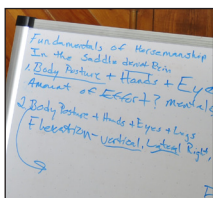 Fundamentals of Horsemanship
In the Saddle
1. Body Posture + Hands + Eye
Amount of Effort? mentally
2. Body Posture + Hands + Eyes + Legs
Flexation - vertical, Lateral Right,